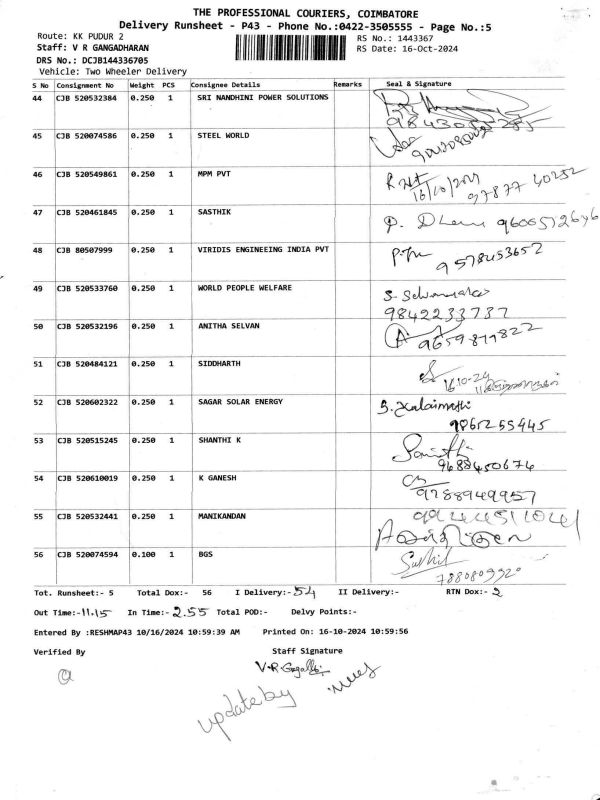 THE PROFESSIONAL COURIERS, COIMBATORE
Delivery Runsheet - P43 - Phone No.:0422-3505555 - Page No.:5
Route: KK PUDUR 2
RS No.: 1443367
Staff: V R GANGADHARAN
RS Date: 16-Oct-2024
DRS No.: DCJB144336705
Vehicle: Two Wheeler Delivery
S No Consignment No Weight PCS Consignee Details Remarks Seal & Signature
44 CJB 520532384 0.250 1 SRI NANDHINI POWER SOLUTIONS
45 CJB 520074586 0.250 1 STEEL WORLD
46 CJB 520549861 0.250 1 MPM PVT 16/10/2024 97877 40252
47 CJB 520461845 0.250 1 SASTHIK
48 CJB 80507999 0.250 1 VIRIDIS ENGINEEING INDIA PVT 9578453652
49 CJB 520533760 0.250 1 WORLD PEOPLE WELFARE
9842233737
50 CJB 520532196 0.250 1 ANITHA SELVAN
51 CJB 520484121 0.250 1 SIDDHARTH 16-10-24
52 CJB 520602322 0.250 1 SAGAR SOLAR ENERGY S. Kalaimathi
9865255445
53 CJB 520515245 0.250 1 SHANTHI K
9688450674
54 CJB 520610019 0.250 1 K GANESH
9788949957
55 CJB 520532441 0.250 1 MANIKANDAN
56 CJB 520074594 0.100 1 BGS
Tot. Runsheet:- 5 Total Dox:- 56 I Delivery:- 54 II Delivery:- RTN Dox:- 2
Out Time:- 11.15 In Time:- 2.55 Total POD:- Delvy Points:-
Entered By :RESHMAP43 10/16/2024 10:59:39 AM Printed On: 16-10-2024 10:59:56
Verified By Staff Signature
update by